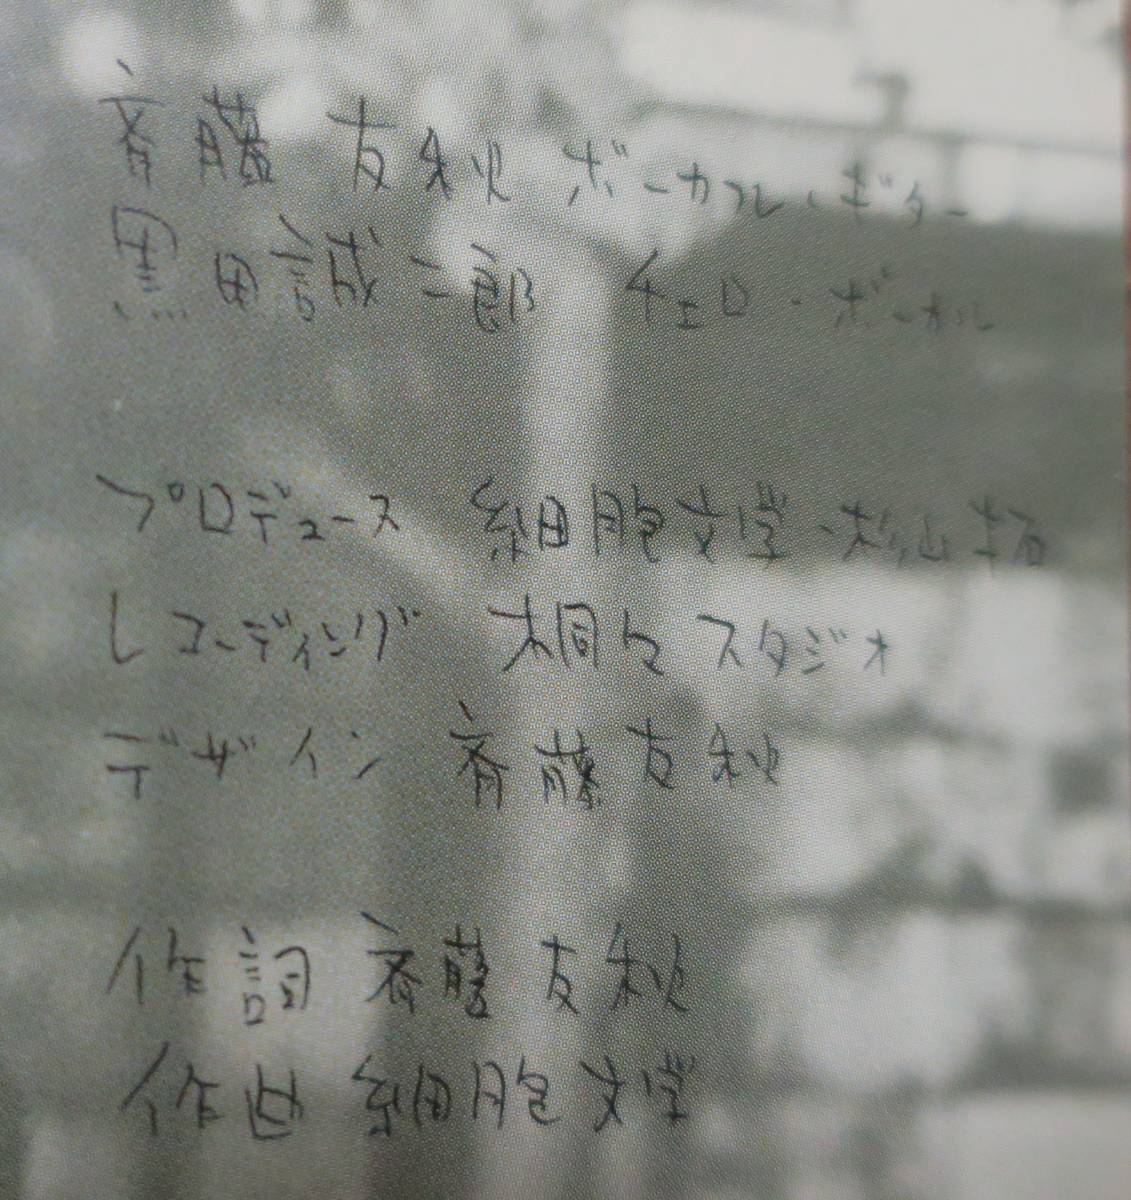 斉藤 友秋 ボーカル・ギター
黒田誠二郎 チェロ・ボーカル
プロデュース 細胞文学・杉山拓
レコーディング 桐々スタジオ
デザイン 斉藤友秋
作詞 斉藤友秋
作曲 細胞文学